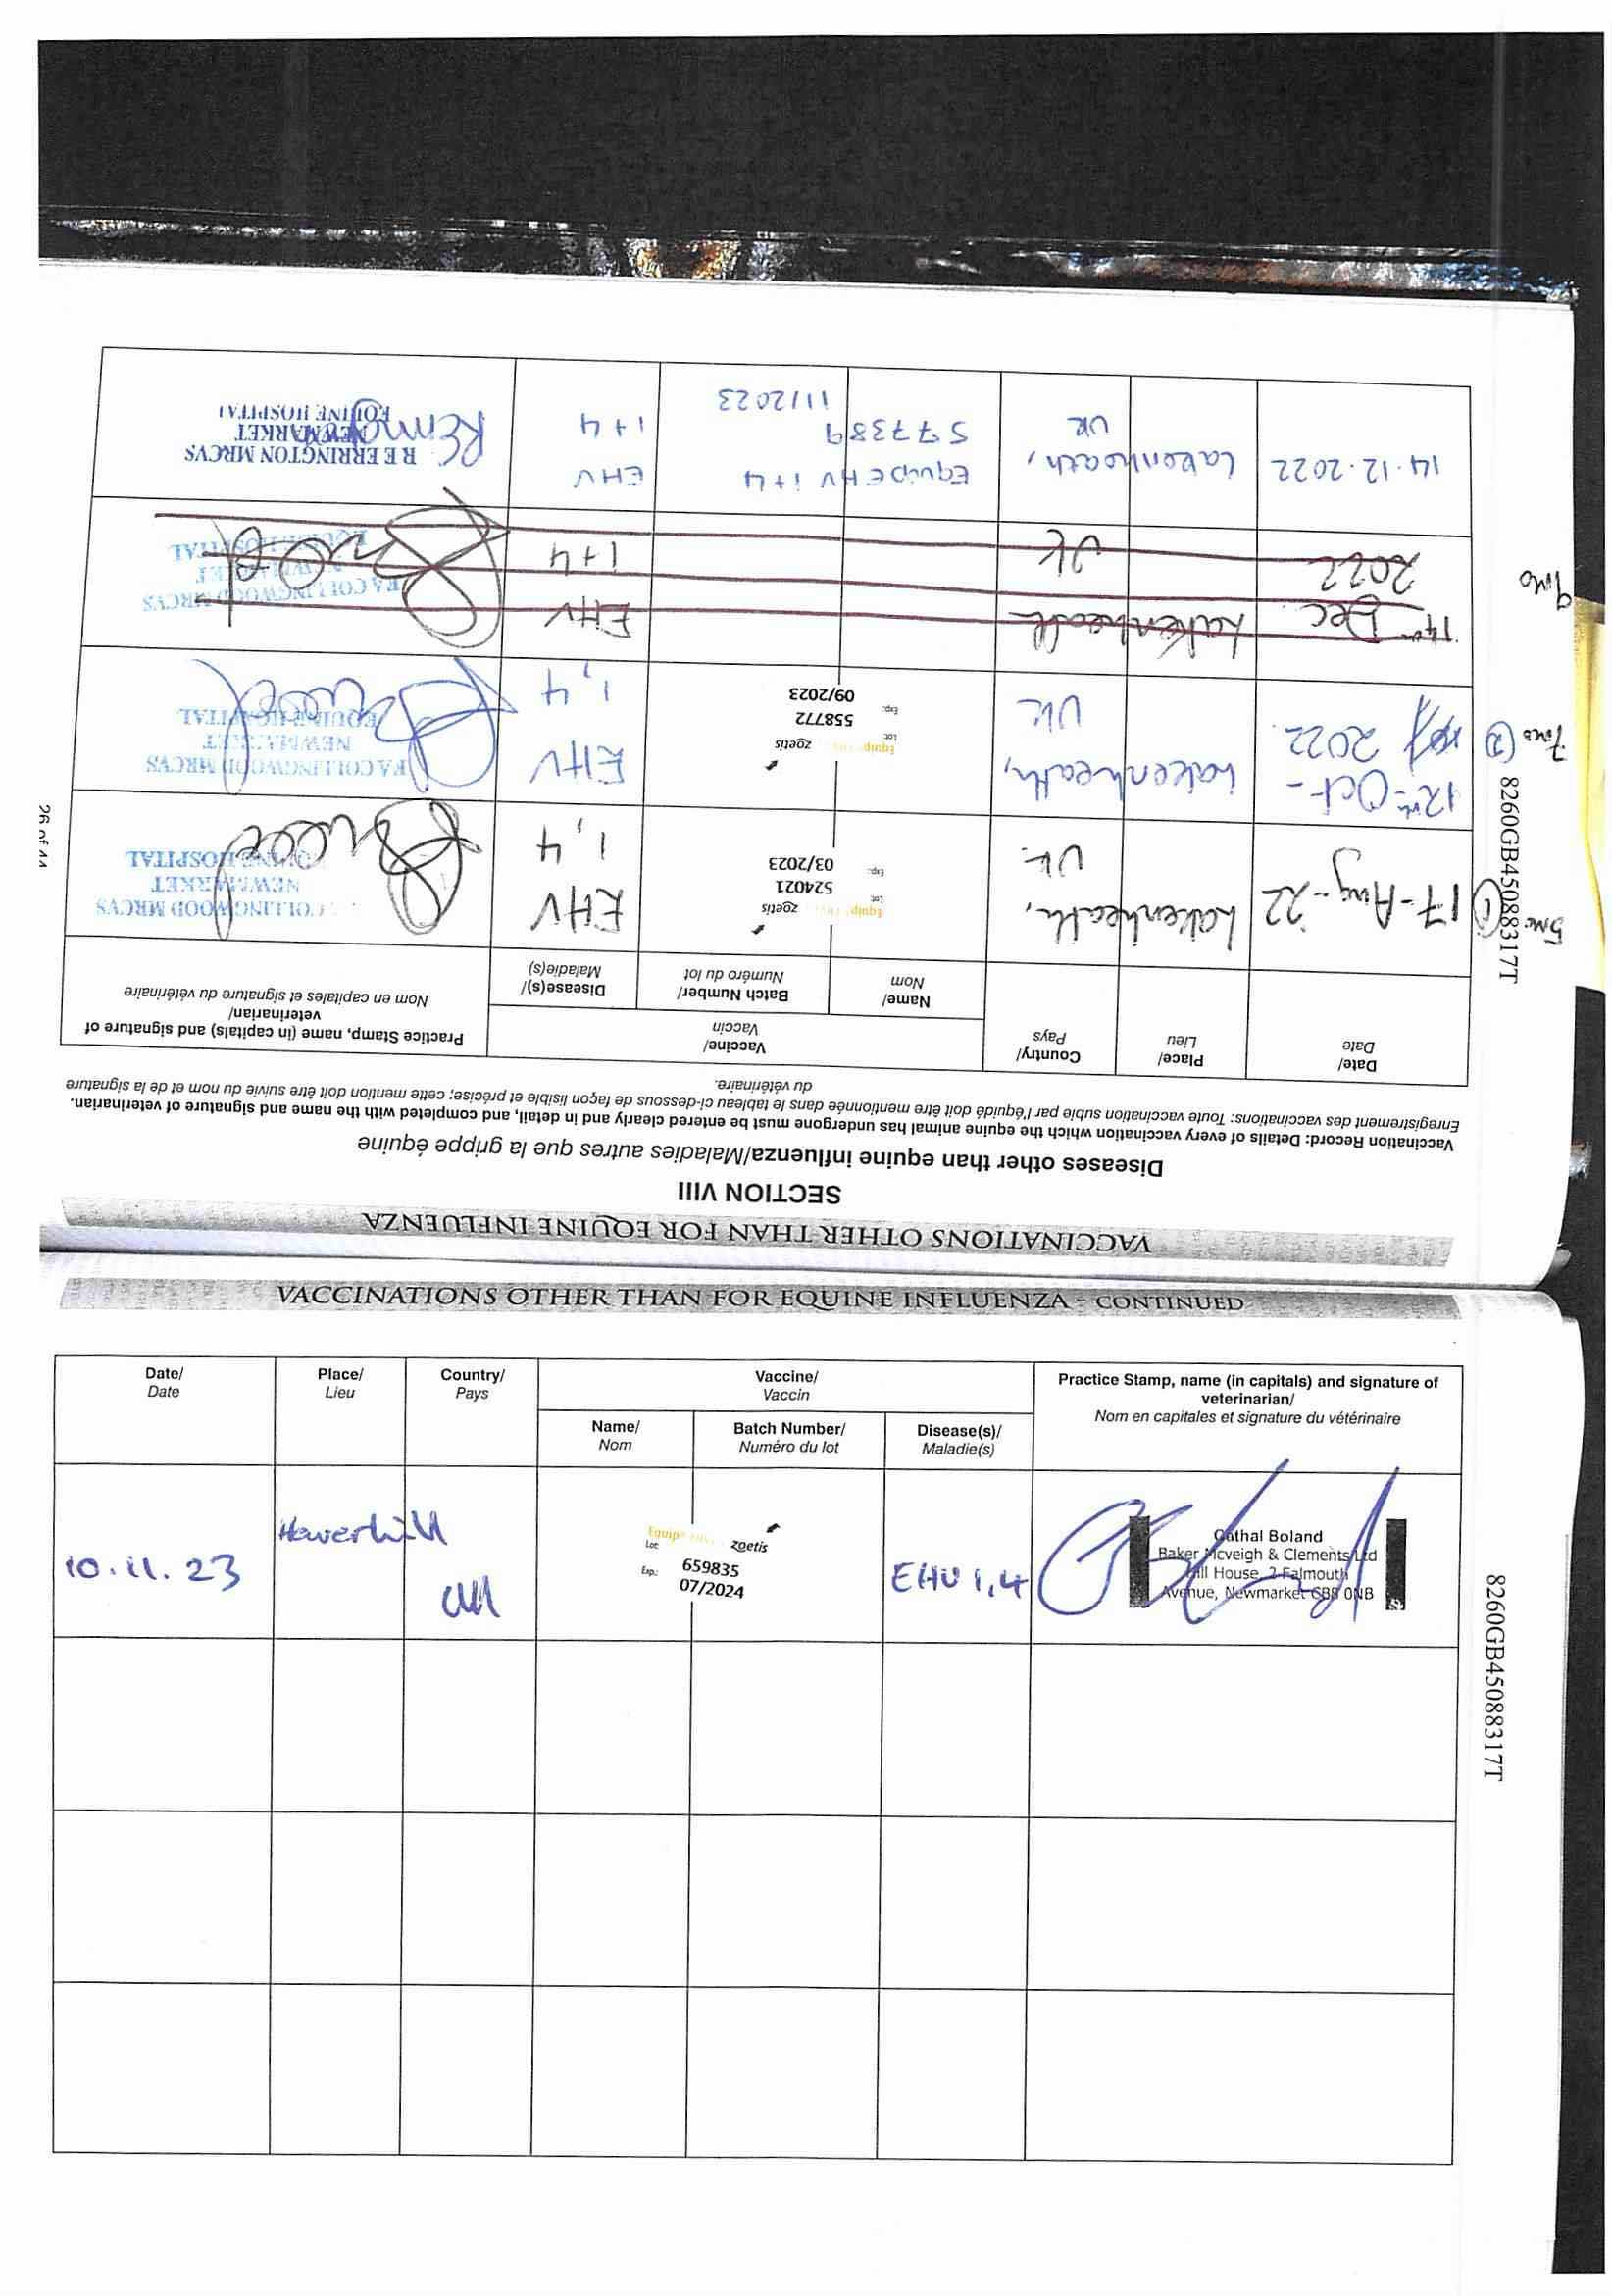 VACCINATIONS OTHER THAN FOR EQUINE INFLUENZA
SECTION VIII
Diseases other than equine influenza/Maladies autres que la grippe équine
Vaccination Record: Details of every vaccination which the equine animal has undergone must be entered clearly and in detail, and completed with the name and signature of veterinarian.
Enregistrement des vaccinations: Toute vaccination subie par l'équidé doit être mentionnée dans le tableau ci-dessous de façon lisible et précise; cette mention doit être suivie du nom et de la signature
du vétérinaire.
Date/
Date
Place/
Lieu
Country/
Pays
Vaccine/
Vaccin
Name/
Nom
Batch Number/
Numéro du lot
Disease(s)/
Maladie(s)
Practice Stamp, name (in capitals) and signature of
veterinarian/
Nom en capitales et signature du vétérinaire
5mo ①
17-Aug-22
Lakenheath,
UK.
Equip
zoetis
Lot:
524021
Exp:
03/2023
EHV
1,4
COLLINGWOOD MRCVS
NEWMARKET
EQUINE HOSPITAL
7mo ②
12th-Oct-
2022.
Lakenheath,
UK
Equip
zoetis
Lot:
558772
Exp:
09/2023
EHV
1,4
F A COLLINGWOOD MRCVS
NEWMARKET
EQUINE HOSPITAL
9mo
14th Dec
2022
Lakenheath
UK
EHV
1+4
F A COLLINGWOOD MRCVS
NEWMARKET
EQUINE HOSPITAL
14.12.2022
Lakenheath,
UK
EquipEHV 1+4
577389
11/2023
EHV
1+4
R E ERRINGTON MRCVS
NEWMARKET
EQUINE HOSPITAL
8260GB45088317T
26 of 44
VACCINATIONS OTHER THAN FOR EQUINE INFLUENZA - CONTINUED
Date/
Date
Place/
Lieu
Country/
Pays
Vaccine/
Vaccin
Name/
Nom
Batch Number/
Numéro du lot
Disease(s)/
Maladie(s)
Practice Stamp, name (in capitals) and signature of
veterinarian/
Nom en capitales et signature du vétérinaire
10.11.23
Haverhill
Equip
zoetis
Lot:
659835
Exp:
07/2024
EHV 1,4
Cathal Boland
Baker Mcveigh & Clements Ltd
Hill House, 2 Falmouth
Avenue, Newmarket CB8 0NB
8260GB45088317T